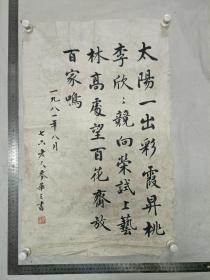 太陽一出彩霞昇桃
李欣:競向榮試上藝
林高處望百花齊放
百家鳴
一九八一年八月
七六老人秦華三書